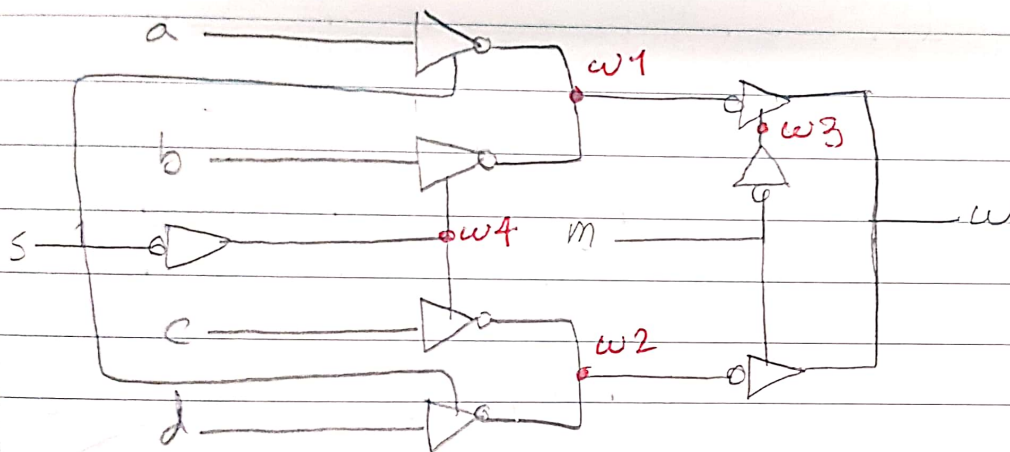 a
w1
w3
b
w
s
w4
m
c
w2
d